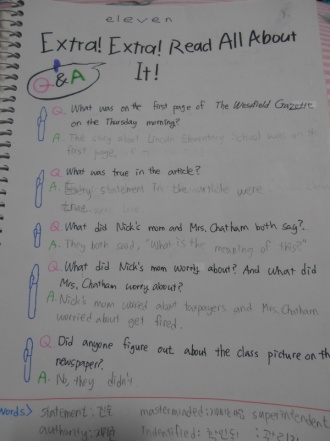 eleven
Extra! Extra! Read All About
It!
Q & A
Q. What was on the first page of The Westfield Gazette
on the Thursday morning?
A. The story about Lincoln Elementary School was on the
first page.
Q. What was true in the article?
A. Every statement in the article were
true
Q. What did Nick's mom and Mrs. Chatham both say?
A. They both said, "What is the meaning of this?"
Q. What did Nick's mom worry about? And what did
Mrs. Chatham worry about?
A. Nick's mom worried about taxpayers and Mrs. Chatham
worried about get fired.
Q. Did anyone figure out about the class picture on the
newspaper?
A. No, they didn't.
words> statement: masterminded: superintendent
authority: indentified: